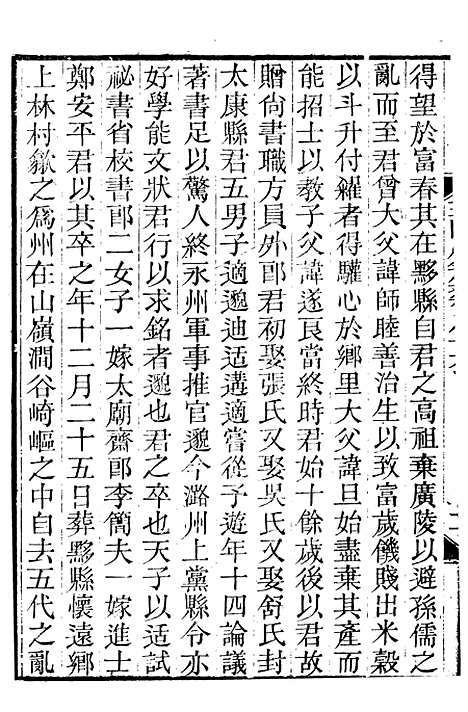 得望於富春其在黟縣自君之高祖棄廣陵以避孫儒之
亂而至君曾大父諱師睦善治生以致富歲饑賤出米穀
以斗升付糴者得驩心於鄉里大父諱旦始盡棄其產而
能招士以教子父諱遂良當終時君始十餘歲後以君故
贈尚書職方員外郎君初娶張氏又娶吳氏又娶舒氏封
太康縣君五男子適邈迪适遘適嘗從予遊年十四論議
著書足以驚人終永州軍事推官邈今潞州上黨縣令亦
好學能文狀君行以求銘者邈也君之卒也天子以适試
祕書省校書郎二女子一嫁太廟齋郎李簡夫一嫁進士
鄭安平君以其卒之年十二月二十五日葬黟縣懷遠鄉
上林村歙之爲州在山嶺澗谷崎嶇之中自去五代之亂